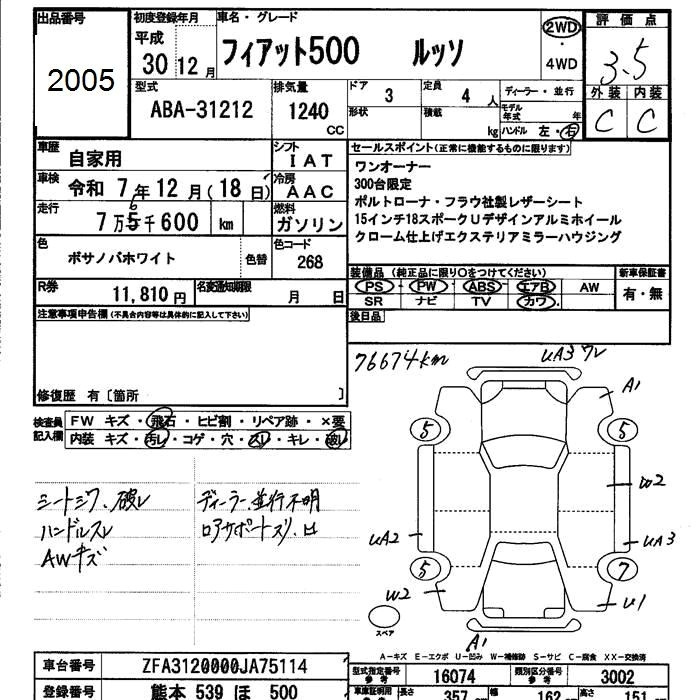 出品番号 初度登録年月 車名・グレード 2WD ・ 4WD 評価点
2005 平成 30 12月 フィアット500 ルッソ 3.5
型式 排気量 ドア 定員 ディーラー・並行 外装 内装
ABA-31212 1240 CC 3 4人 モデル年式 年 C C
形状 積載 kg ハンドル 左・右
車歴 自家用 シフト IAT セールスポイント(正常に機能するものに限ります)
車検 令和 7年12月(18日) 冷房 AAC ワンオーナー
300台限定
走行 7万5千600 km 燃料 ガソリン ポルトローナ・フラウ社製レザーシート
6
15インチ18スポークUデザインアルミホイール
色 ボサノバホワイト 色替 色コード 268 クローム仕上げエクステリアミラーハウジング
R券 11,810円 名変通知期限 月 日 装備品(純正品に限り○をつけてください) 新車保証書
PS・PW・ABS・エアB・AW 有・無
SR ナビ TV カワ
注意事項申告欄(不具合内容等は具体的に記入して下さい) 後日品
76674km UA3 ワレ
A1
修復歴 有〔箇所 〕
検査員記入欄 FW キズ・飛石・ヒビ割・リペア跡・×要
内装 キズ・汚レ・コゲ・穴・スレ・キレ・破レ
5 5
W2
シートシワ、破レ ディーラー、並行不明
ハンドルスレ ロアサポートズリ、凹
AWキズ
UA2 UA3
5 7
W2 U1
スペア
A1
A－キズ E－エクボ U－凹み W－補修跡 S－サビ C－腐食 XX－交換済
車台番号 ZFA3120000JA75114 型式指定番号 参考 16074 類別区分番号 参考 3002
登録番号 熊本 539 ほ 500 車庫証明用 参考 長さ 357 幅 162 高さ 151